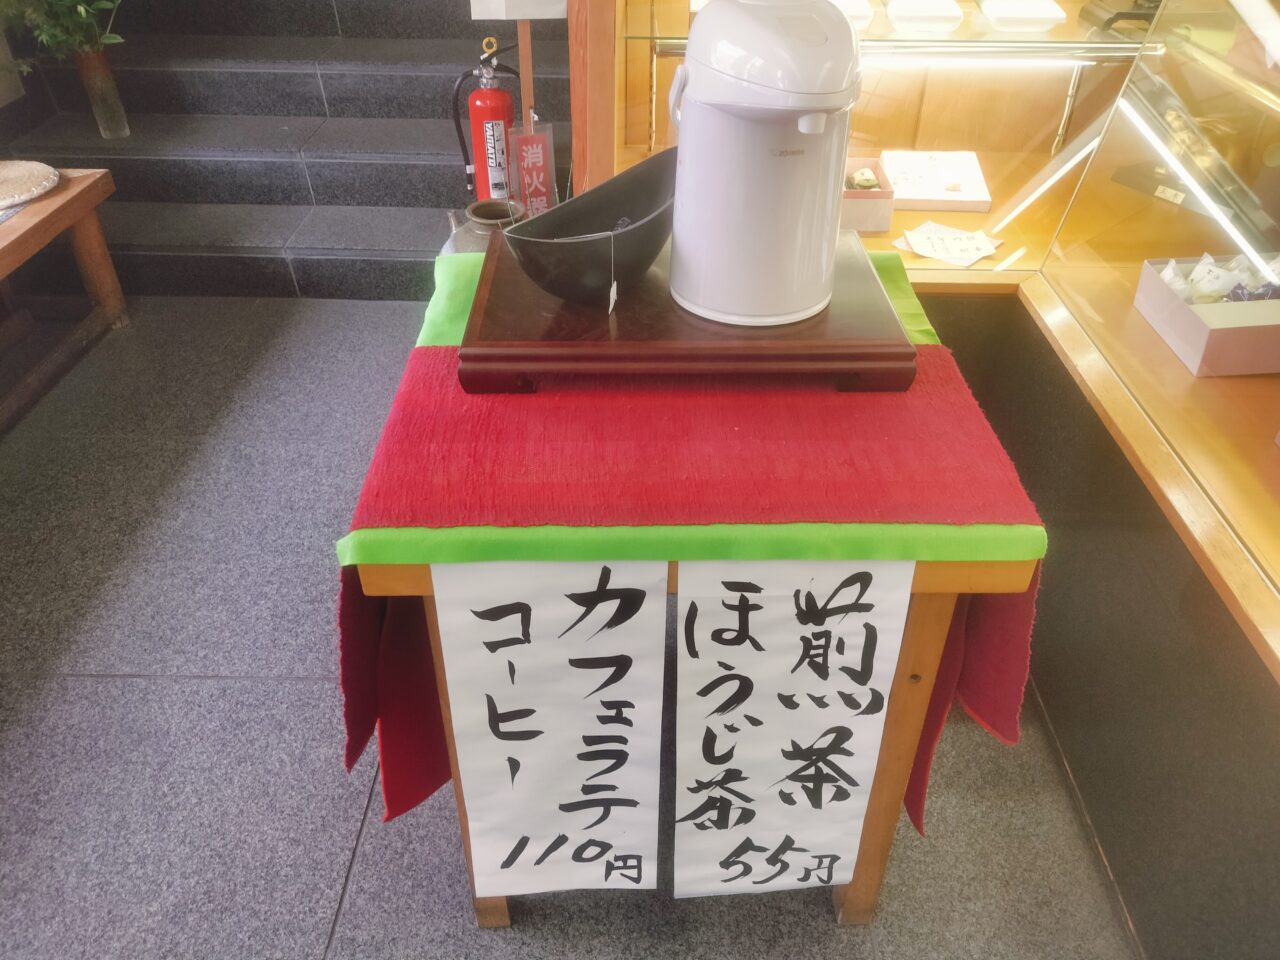 煎茶
ほうじ茶
55円
カフェラテ
コーヒー
110円
消火器
YAMATO
ZOJIRUSHI